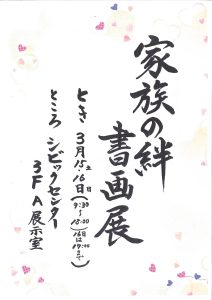 家族の絆
書画展
とき 3月15土・16日日
(9:30〜15:00)(16日は14:00まで)
ところ シビックセンター
3F A展示室